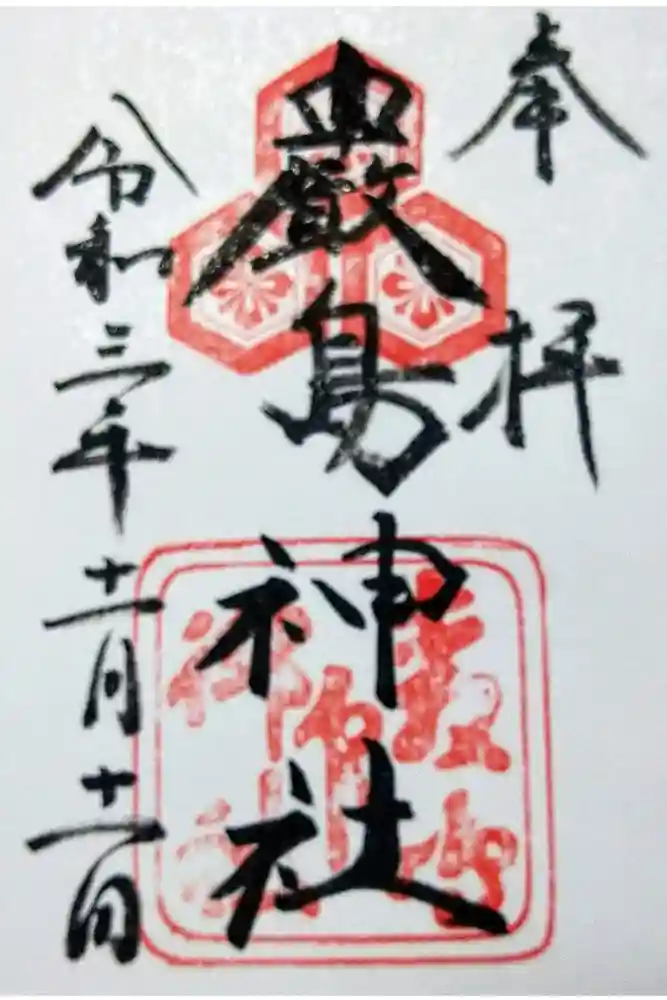 奉拝
嚴島神社
令和三年十一月十一日